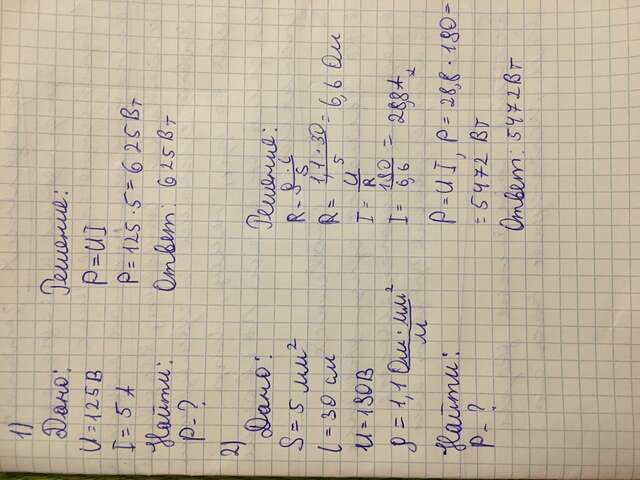 1)
Дано:
U=125В
I=5А
Найти:
P-?
Решение:
P=UI
P=125·5=625Вт
Ответ: 625Вт
2)
Дано:
S=5 мм²
l=30 см
U=190В
ρ=1,1 Ом·мм²/м
Найти:
P-?
Решение:
R=ρ·l/S
R=1,1·30/5=6,6 Ом
I=U/R
I=190/6,6=28,8А
P=UI, P=28,8·190=
=5472 Вт
Ответ: 5472Вт